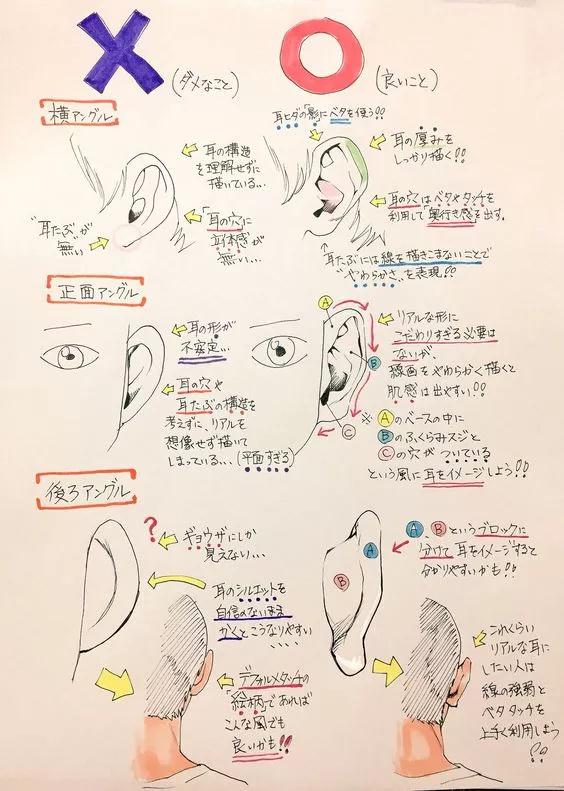 (ダメなこと)
(良いこと)
横アングル
耳の構造
を理解せずに
描いている...
「耳の穴」に
立体感が
無い...
"耳たぶ"が
無い
耳ヒダの「影」にベタを使う!!
耳の厚みを
しっかり描く!!
耳の穴はベタやタッチを
利用して「奥行き感」を出す。
耳たぶには線を描きこまないことで
"やわらかさ"を表現!!
正面アングル
耳の形が
不安定...
耳の穴や
耳たぶの構造を
考えずに、リアルを
想像せず描いて
しまっている...(平面すぎる)
A
B
C
リアルな形に
こだわりすぎる必要は
ないが、
線画をやわらかく描くと
肌感は出やすい!!
※ Aのベースの中に
Bのふくらみスジと
Cの穴がついている
という風に耳をイメージしよう!!
後ろアングル
?
ギョウザにしか
見えない...
耳のシルエットを
自信のないまま
かくとこうなりやすい
、、、、
デフォルメタッチの
「絵柄」であれば
こんな風でも
良いかも!!
A
B
A、Bというブロックに
分けて耳をイメージすると
分かりやすいかも!!
これくらい
リアルな耳に
したい人は
線の強弱と
ベタタッチを
上手く利用しよう
!!